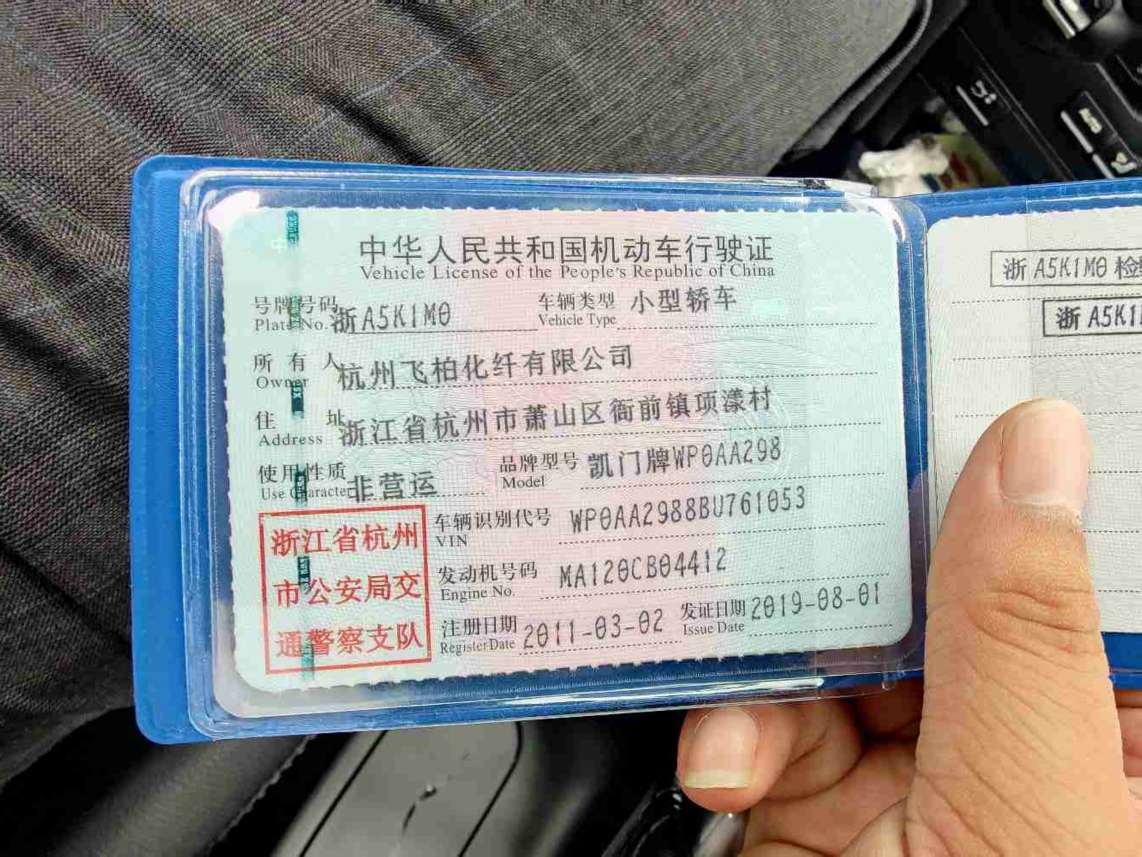 中华人民共和国机动车行驶证
Vehicle License of the People's Republic of China
号牌号码 浙A5K1M0 车辆类型 小型轿车
Plate No. Vehicle Type
所有人 杭州飞柏化纤有限公司
Owner
住址 浙江省杭州市萧山区衙前镇项漾村
Address
使用性质 非营运 品牌型号 凯门牌WP0AA298
Use Character Model
车辆识别代号 WP0AA2988BU761053
VIN
发动机号码 MA120CB04412
Engine No.
注册日期 2011-03-02 发证日期 2019-08-01
Register Date Issue Date
浙江省杭州
市公安局交
通警察支队
浙A5K1M0 检
浙A5K1